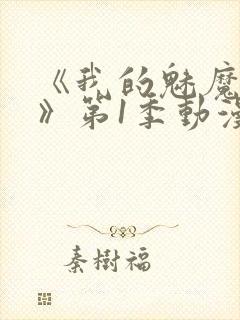 《我的魅魔
》第1季動漫
秦樹福